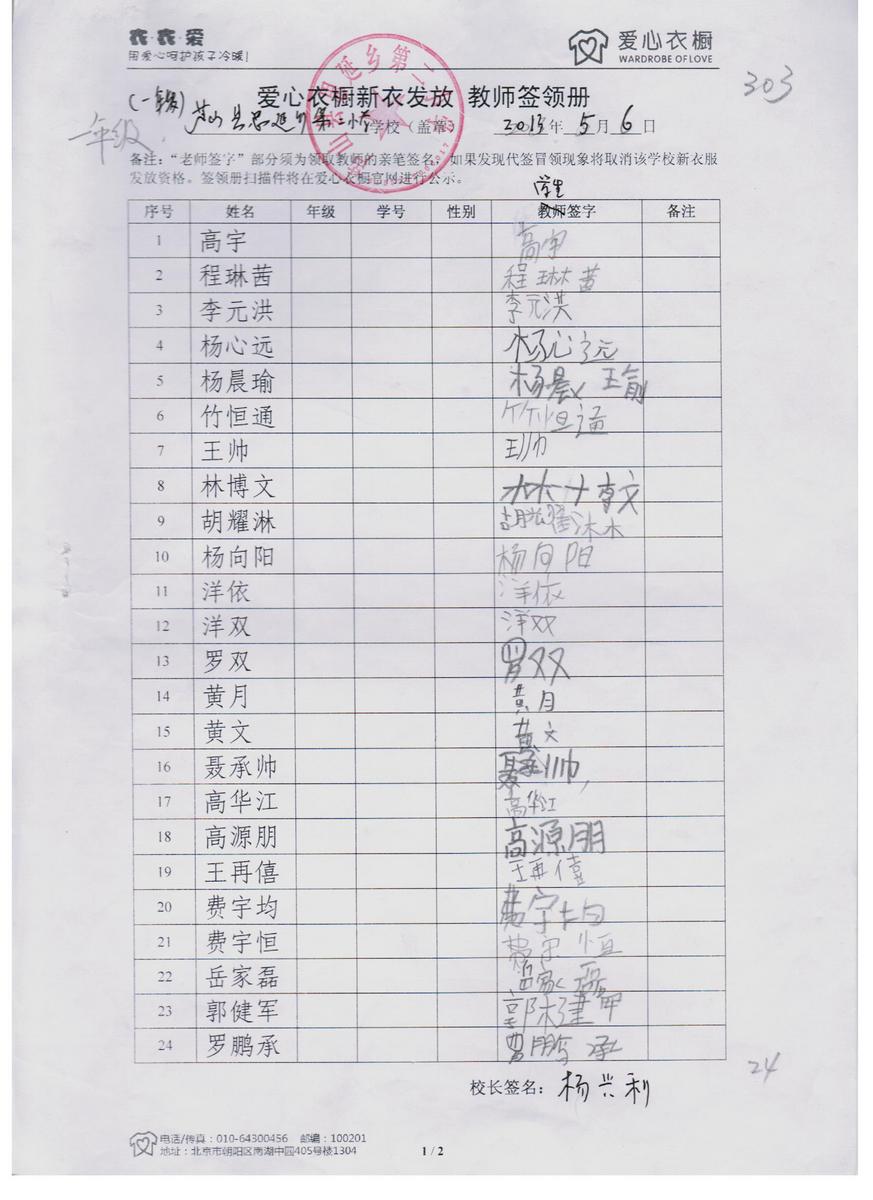 衣·衣·爱
用爱心呵护孩子冷暖!
爱心衣橱
WARDROBE OF LOVE
303
(一年级) 爱心衣橱新衣发放 教师签领册
一年级
芦山县思延乡第二小学学校(盖章) 2013年5月6日
备注:“老师签字”部分须为领取教师的亲笔签名,如果发现代签冒领现象将取消该学校新衣服
发放资格。签领册扫描件将在爱心衣橱官网进行公示。
学生
序号 姓名 年级 学号 性别 教师签字 备注
1 高宇 高宇
2 程琳茜 程琳茜
3 李元洪 李元洪
4 杨心远 杨心远
5 杨晨瑜 杨晨瑜
6 竹恒通 竹恒通
7 王帅 王帅
8 林博文 林博文
9 胡耀淋 胡耀淋
10 杨向阳 杨向阳
11 洋依 洋依
12 洋双 洋双
13 罗双 罗双
14 黄月 黄月
15 黄文 黄文
16 聂承帅 聂承帅
17 高华江 高华江
18 高源朋 高源朋
19 王再僖 王再僖
20 费宇均 费宇均
21 费宇恒 费宇恒
22 岳家磊 岳家磊
23 郭健军 郭健军
24 罗鹏承 罗鹏承
校长签名: 杨兴利
24
电话/传真:010-64300456 邮编:100201
地址:北京市朝阳区南湖中园405号楼1304
1 / 2